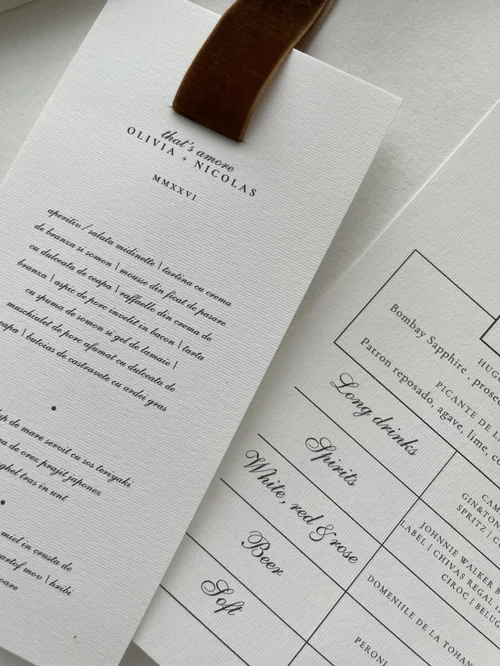 that's amore
OLIVIA + NICOLAS
MMXXVI
aperitiv / salata midinette \ tartina cu crema
de branza si somon \ mousse din ficat de pasare
cu dulceata de ceapa \ raffaello din crema de
branza \ aspic de porc invelit in bacon \ tarta
cu spuma de somon si gel de lamaie \
muschiulet de porc afumat cu dulceata de
\ butoias de castravete cu ardei gras
de mare servit cu sos teriyaki
de orez prajit japonez
tras in unt
miel in crusta de
mov \ hribi
Bombay Sapphire , prosec
PICANTE DE L
Patron reposado, agave, lime, c
Long drinks
Spirits
GIN&TON
SPRITZ | CA
White, red & rose
JOHNNIE WALKER B
LABEL | CHIVAS REGAL 12
CIROC | BELUG
Beer
DOMENIILE DE LA TOHAN
Soft
PERONI